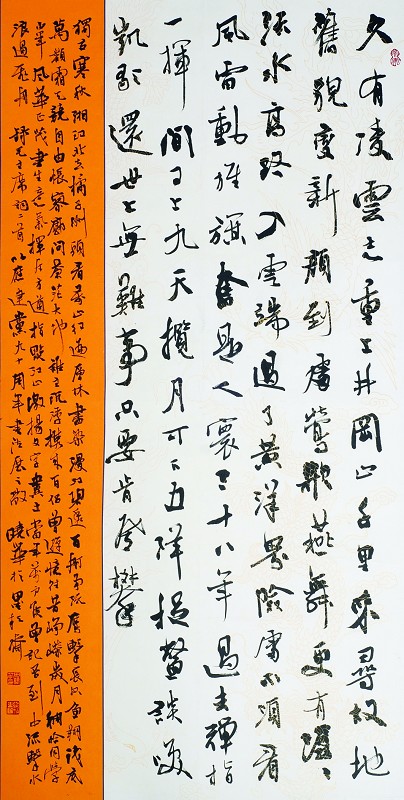 久有凌雲志重上井岡山千里來尋故地
舊貌變新顏到處鶯歌燕舞更有潺〻
流水高路入雲端過了黃洋界險處不須看
風雷動旌旗奮是人寰三十八年過去彈指
一揮間可上九天攬月可下五洋捉鱉談笑
凱歌還世上無難事只要肯登攀
獨立寒秋湘江北去橘子洲頭看萬山紅遍層林盡染漫江碧透百舸爭流鷹擊長空魚翔淺底
萬類霜天競自由悵寥廓問蒼茫大地誰主沉浮攜來百侶曾遊憶往昔崢嶸歲月稠恰同學
少年風華正茂書生意氣揮斥方遒指點江山激揚文字糞土當年萬戶侯曾記否到中流擊水
浪遏飛舟 毛主席詞二首以慶建黨九十周年書法展 曉華於墨